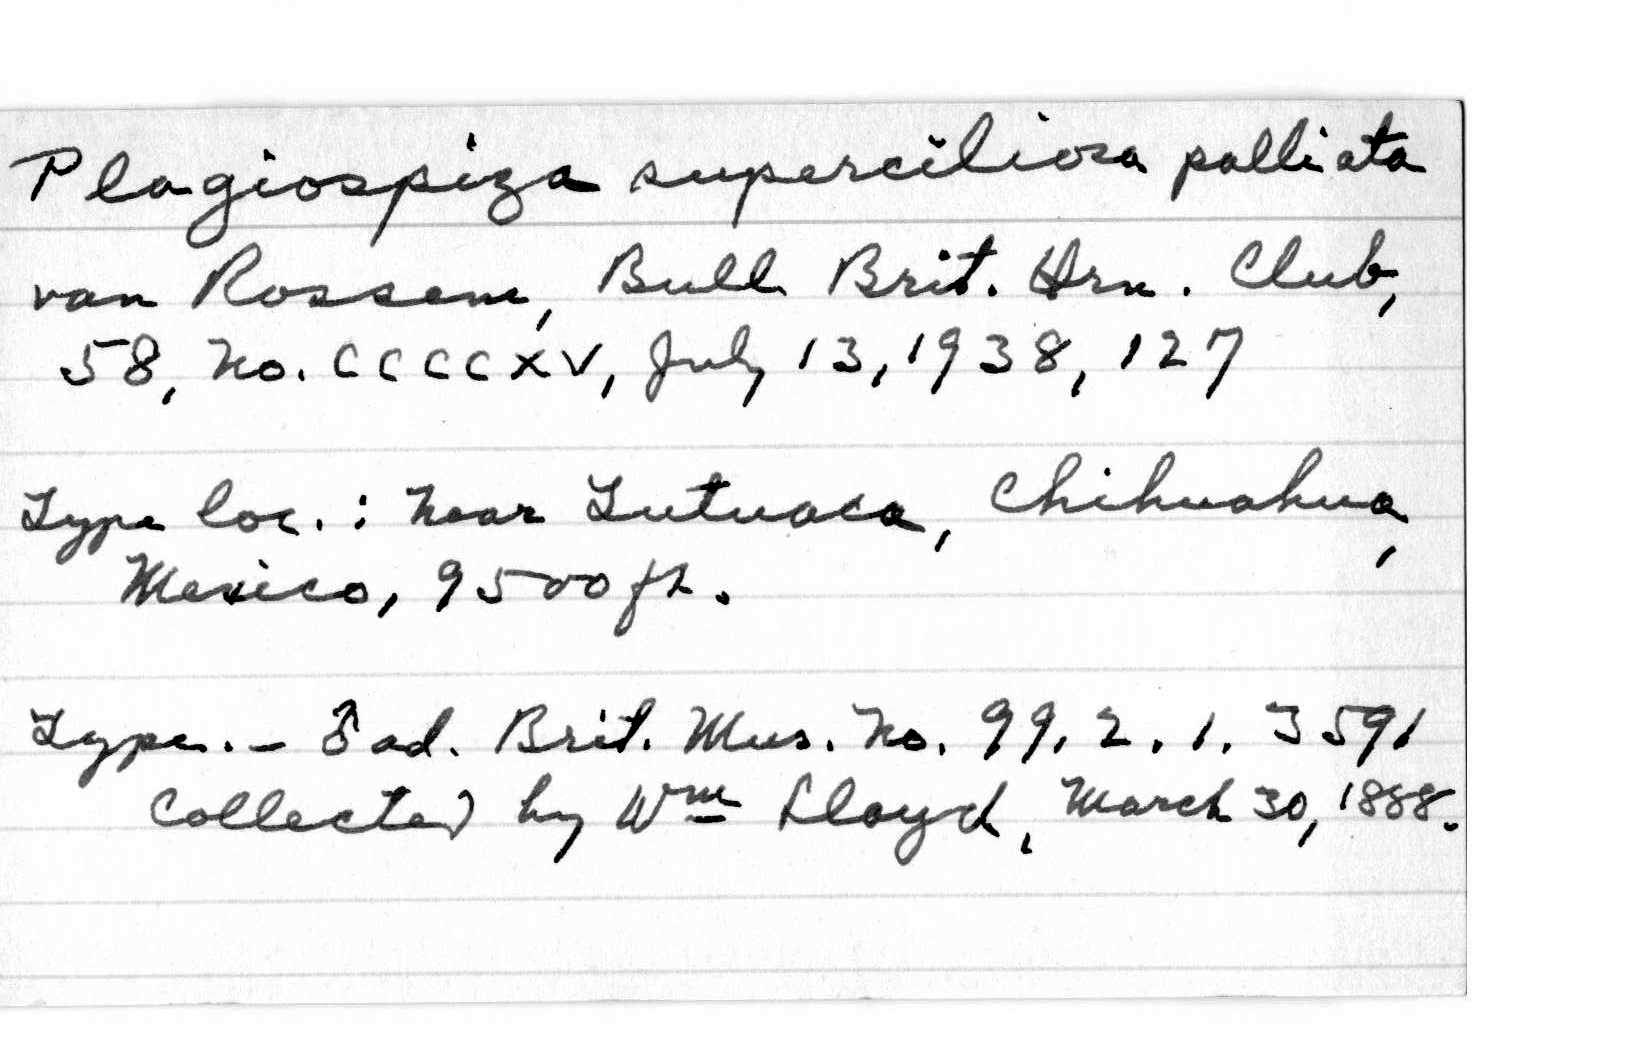 Plagiospiza superciliosa palliata
van Rossem, Bull. Brit. Orn. Club,
58, No. CCCCXV, July 13, 1938, 127
Type loc. : Near Tutuaca, Chihuahua,
Mexico, 9500 ft.
Type. - ♂ ad. Brit. Mus. No. 99. 2. 1. 3591
Collected by Wm Lloyd, March 30, 1888.